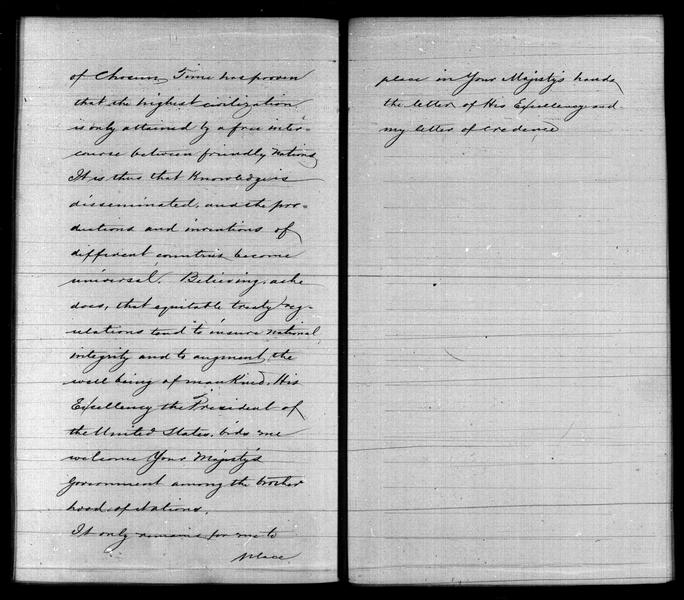 of Chosun, Time has proven
that the highest civilization
is only attained by a free inter-
course between friendly Nations
It is thus that Knowledge is
disseminated, and the pro-
ductions and inventions of
different countries become
universal. Believing, as he
does, that equitable treaty reg-
ulations tend to insure National
integrity and to augment the
well being of mankind, His
Excellency the President of
the United States, bids me
welcome Your Majesty's
Government among the brother
hood of Nations.
It only remains for me to
place
place in Your Majesty's hands
the letter of His Excellency and
my letter of credence